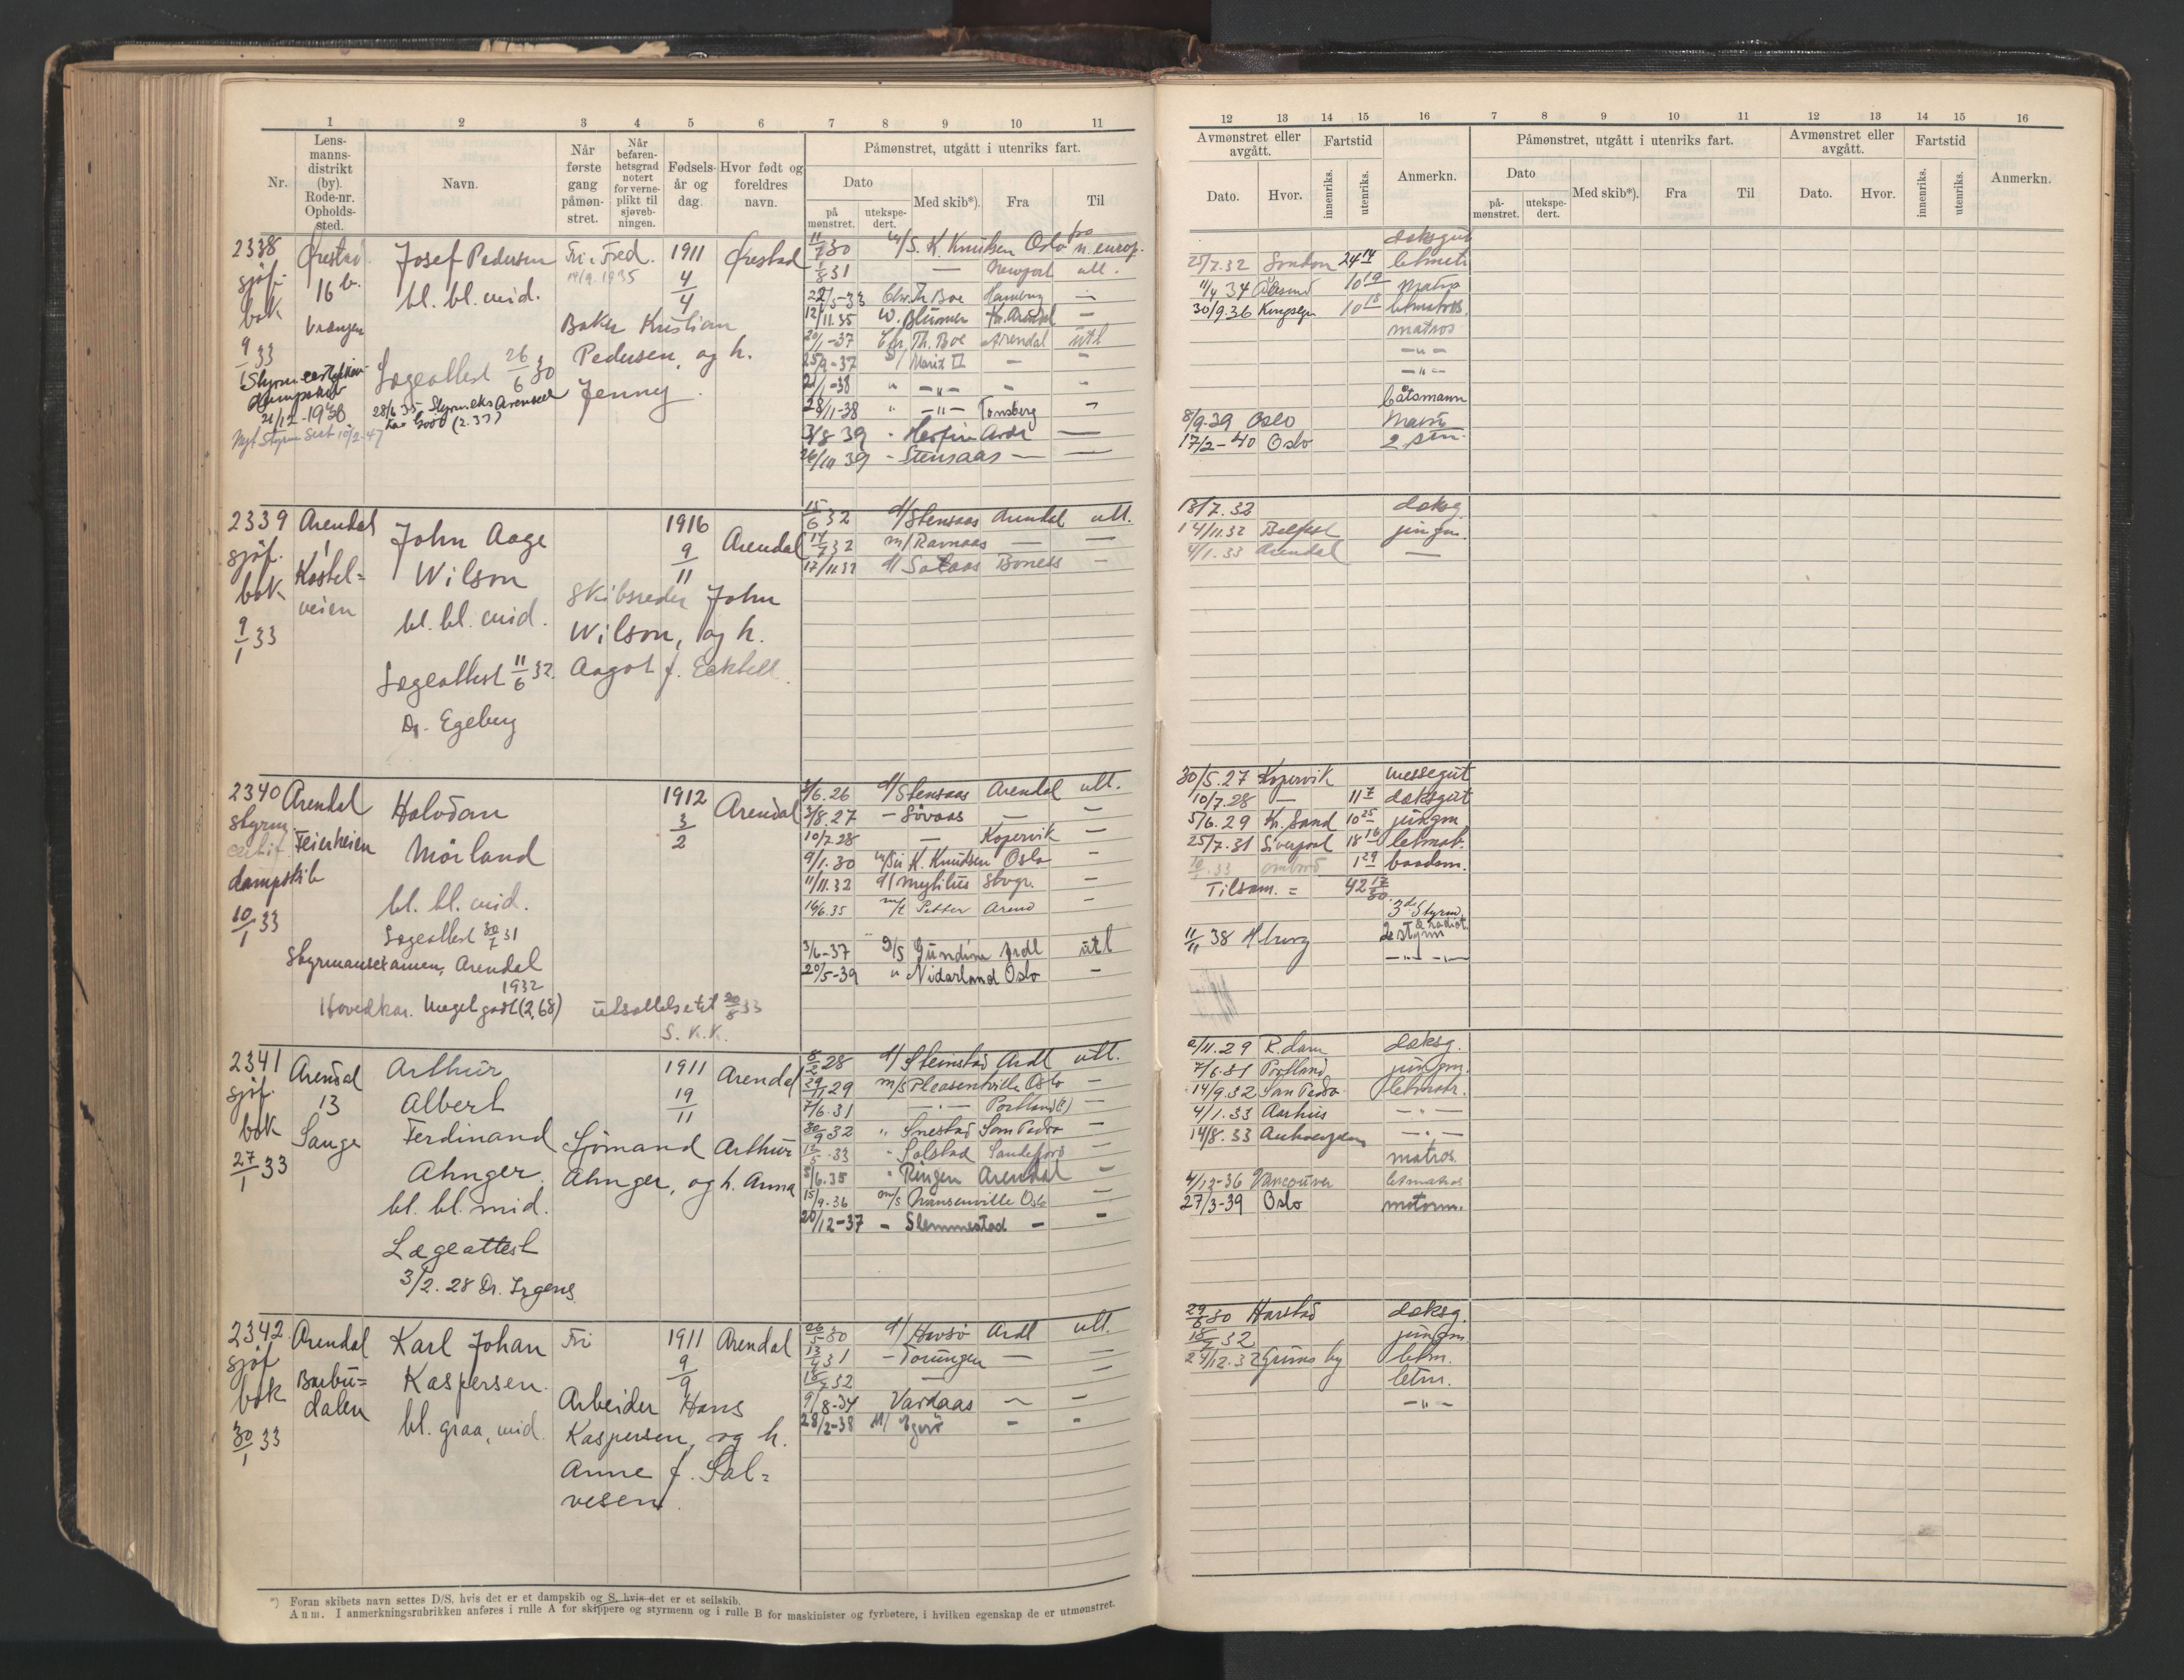 1 2 3 4 5 6 7 8 9 10 11
Nr.
Lens-
manns-
distrikt
(by).
Rode-nr.
Opholds-
sted.
Navn.
Når
første
gang
påmøn-
stret.
Når
befaren-
hetsgrad
notert
for verne-
plikt til
sjøveb-
ningen.
Fødsels-
år og
dag.
Hvor født og
foreldres
navn.
Påmønstret, utgått i utenriks fart.
Dato
på
mønstret.
utekspe-
dert.
Med skib*).
Fra
Til
12 13 14 15 16 7 8 9 10 11 12 13 14 15 16
Avmønstret eller
avgått.
Dato.
Hvor.
Fartstid
innenriks.
utenriks.
Anmerkn.
Påmønstret, utgått i utenriks fart.
Dato
på-
mønstret.
utekspe-
dert.
Med skib*).
Fra
Til
Avmønstret eller
avgått.
Dato.
Hvor.
Fartstid
innenriks.
utenriks.
Anmerkn.
2338
sjøf.
bok
9/1 33
Ørestad
16 b.
Josef Pedersen
bl. bl. mid.
Fri. Fred.
14/9.1935
1911
4/4
Ørestad
Baker Kristian
Pedersen, og h.
Jenny.
Lægeattest 26/6 30
21/12-1938
K. Knudsen Oslo
1/8 31 — Newport utl.
Th. Boe Hamburg —
12/11.35
20/1-37 Chr. Th. Boe Arendal utl
25/9-37 Marit II — —
21/1-38 " —"— - -
28/11-38 " —"— Tønsberg -
3/8 39 - Arendl —
26/10 39 - Stensaas — —
dæksgut
25/7.32 London 24 14 letmatr
11/4 34 Ålesund 10 19 Matro
30/9.36 10 18 letmatros.
matros
—"—
—"—
båtsmann
8/9-39 Oslo
17/2-40 Oslo
2339
sjøf.
bok
9/1 33
Arendal
1
Kastel=
veien
John Aage
Wilson
bl. bl. mid.
Lægeattest 11/6 32.
Dr. Egeberg
1916
9/11
Arendal
Skibsreder John
Wilson, og h.
Aagot f.
15/6 32 d/ Stensaas Arendal utl.
m/ Ravnaas — —
17/11 32 d/ Boness -
13/7.32 dæksg.
14/11.32 Belfast jungm.
4/1.33 Arendal —
2340
styrm.
certif.
dampskib
10/1 33
Arendal
Feierheien
Halvdan
Mørland
bl. bl. mid.
Lægeattest
Styrmanseksamen, Arendal
1932
Hovedkar. Meget godt (2,68)
1912
3/2
Arendal
utsættelse til 20/8 33
S. K. K.
3/6.26 d/ Stensaas Arendal utl.
3/8.27 — Søvaas — —
10/7.28 — Kopervik —
9/1.30 K. Knudsen Oslo -
11/11.32 d/ Mytilus Stvgr. -
14/6.35 m/t Petter Arend -
3/6-37 D/S Gundine Ardl utl
20/5-39 " Nidarland Oslo -
30/5.27 Kopervik messegut
10/7.28 — 11 7 dæksgut
5/6.29 Kr. Sand 10 25 jungm
25/7.31 Liverpool 18 16 letmat.
1 29 baadsm.
Tilsam. = 42 17/30
3de Styrm
11/11 38 Hburg 2 styrm
—"—
2341
sjøf.
bok
27/1 33
Arendal
13
Lange
Arthur
Albert
Ferdinand
Ahnger.
bl. bl. mid.
Lægeattest
3/2.28 Dr. Irgens
1911
19/11
Arendal
Sjømand Arthur
Ahnger, og h. Anna
8/2 28 d/ Steinstad Ardl utl.
29/11 29 m/s Pleasantville Oslo -
7/6.31 —"— Portland(?) -
30/9 32 " Snestad San Pedro -
12/5.33 " Solstad Sandefjord -
8/6.35 " Ringen Arendal -
15/9-36 m/s Nansenville Oslo -
20/12-37 - Slemmestad - -
2/11.29 R.dam dæksg.
7/6.31 Portland jungm.
14/9.32 San Pedro letmatr.
4/1.33 Aarhus —"—
14/8.33 Antwerpen —"—
matros.
4/12-36 Vancouver letmatros
27/3-39 Oslo motorm.
2342
sjøf
bok
30/1 33
Arendal
Barbu=
dalen
Karl Johan
Kaspersen.
bl. graa, mid.
Fri
1911
9/9
Arendal
Arbeider Hans
Kaspersen, og h.
Anne f. Sal=
vesen.
26/5 30 d/ Havsø Ardl utl.
13/4 31 - Torungen — —
18/7 32 — —
9/8-34 Vardaas — —
28/2-38 M/ - -
29/6 30 Harstad dæksg.
18/7 32 jungm
24/12.32 Grimsby letm.
letm.
—"—
*) Foran skibets navn settes D/S, hvis det er et dampskib og S, hvis det er et seilskib.
Anm. I anmerkningsrubrikken anføres i rulle A for skippere og styrmenn og i rulle B for maskinister og fyrbøtere, i hvilken egenskap de er utmønstret.